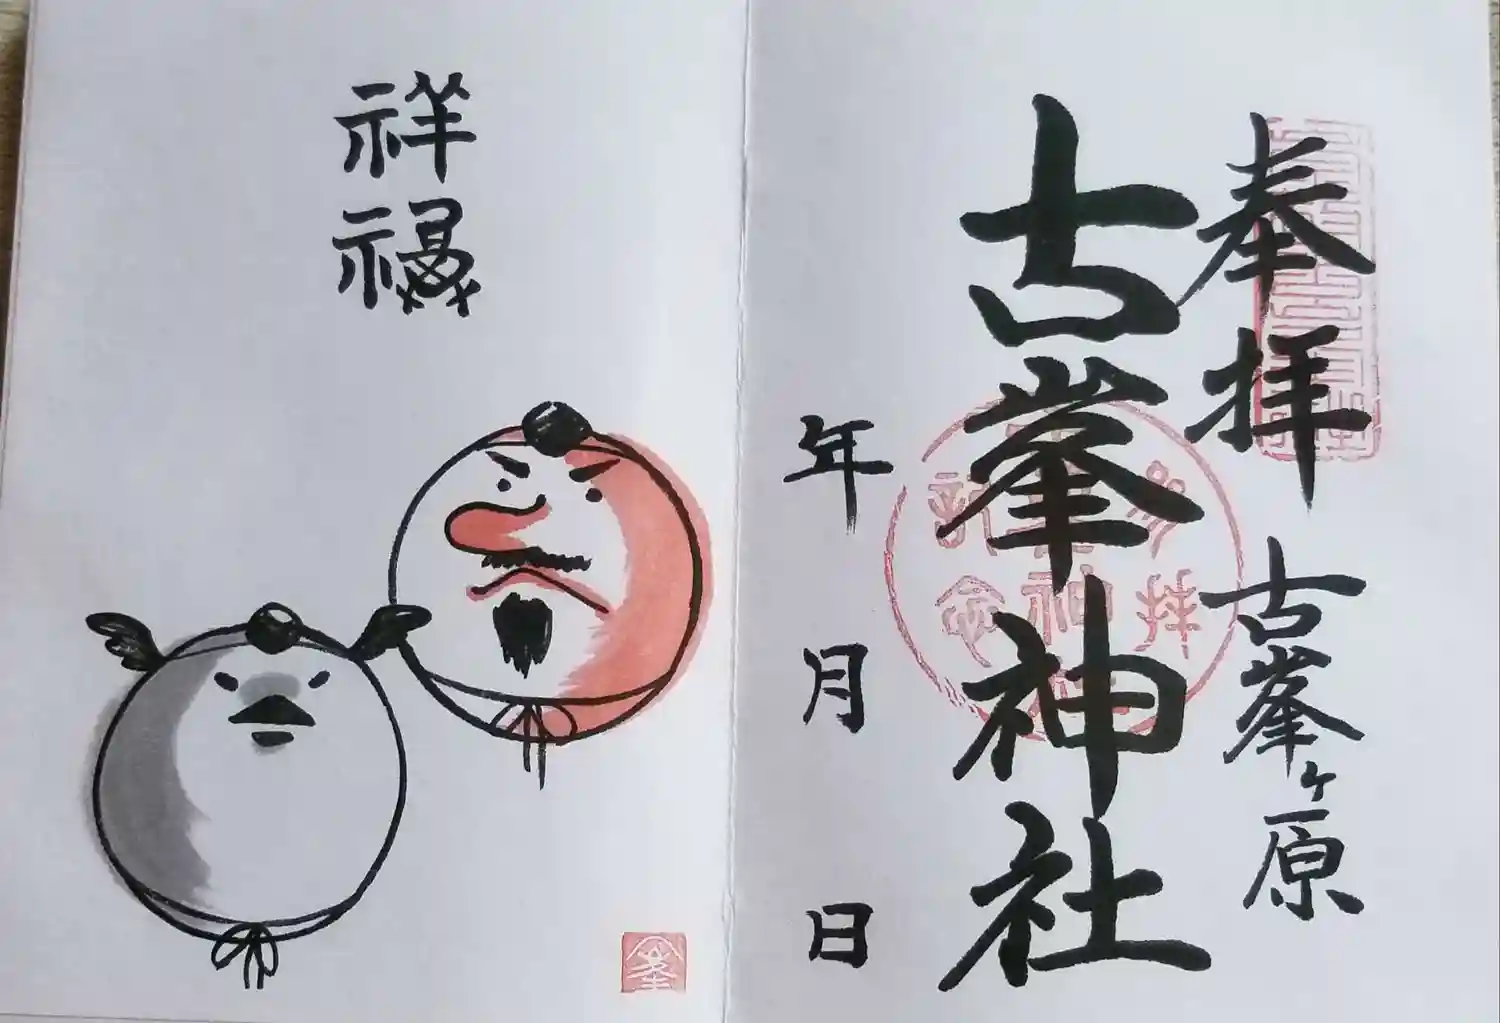 奉拝
古峯ヶ原
古峯神社
年 月 日
祥福